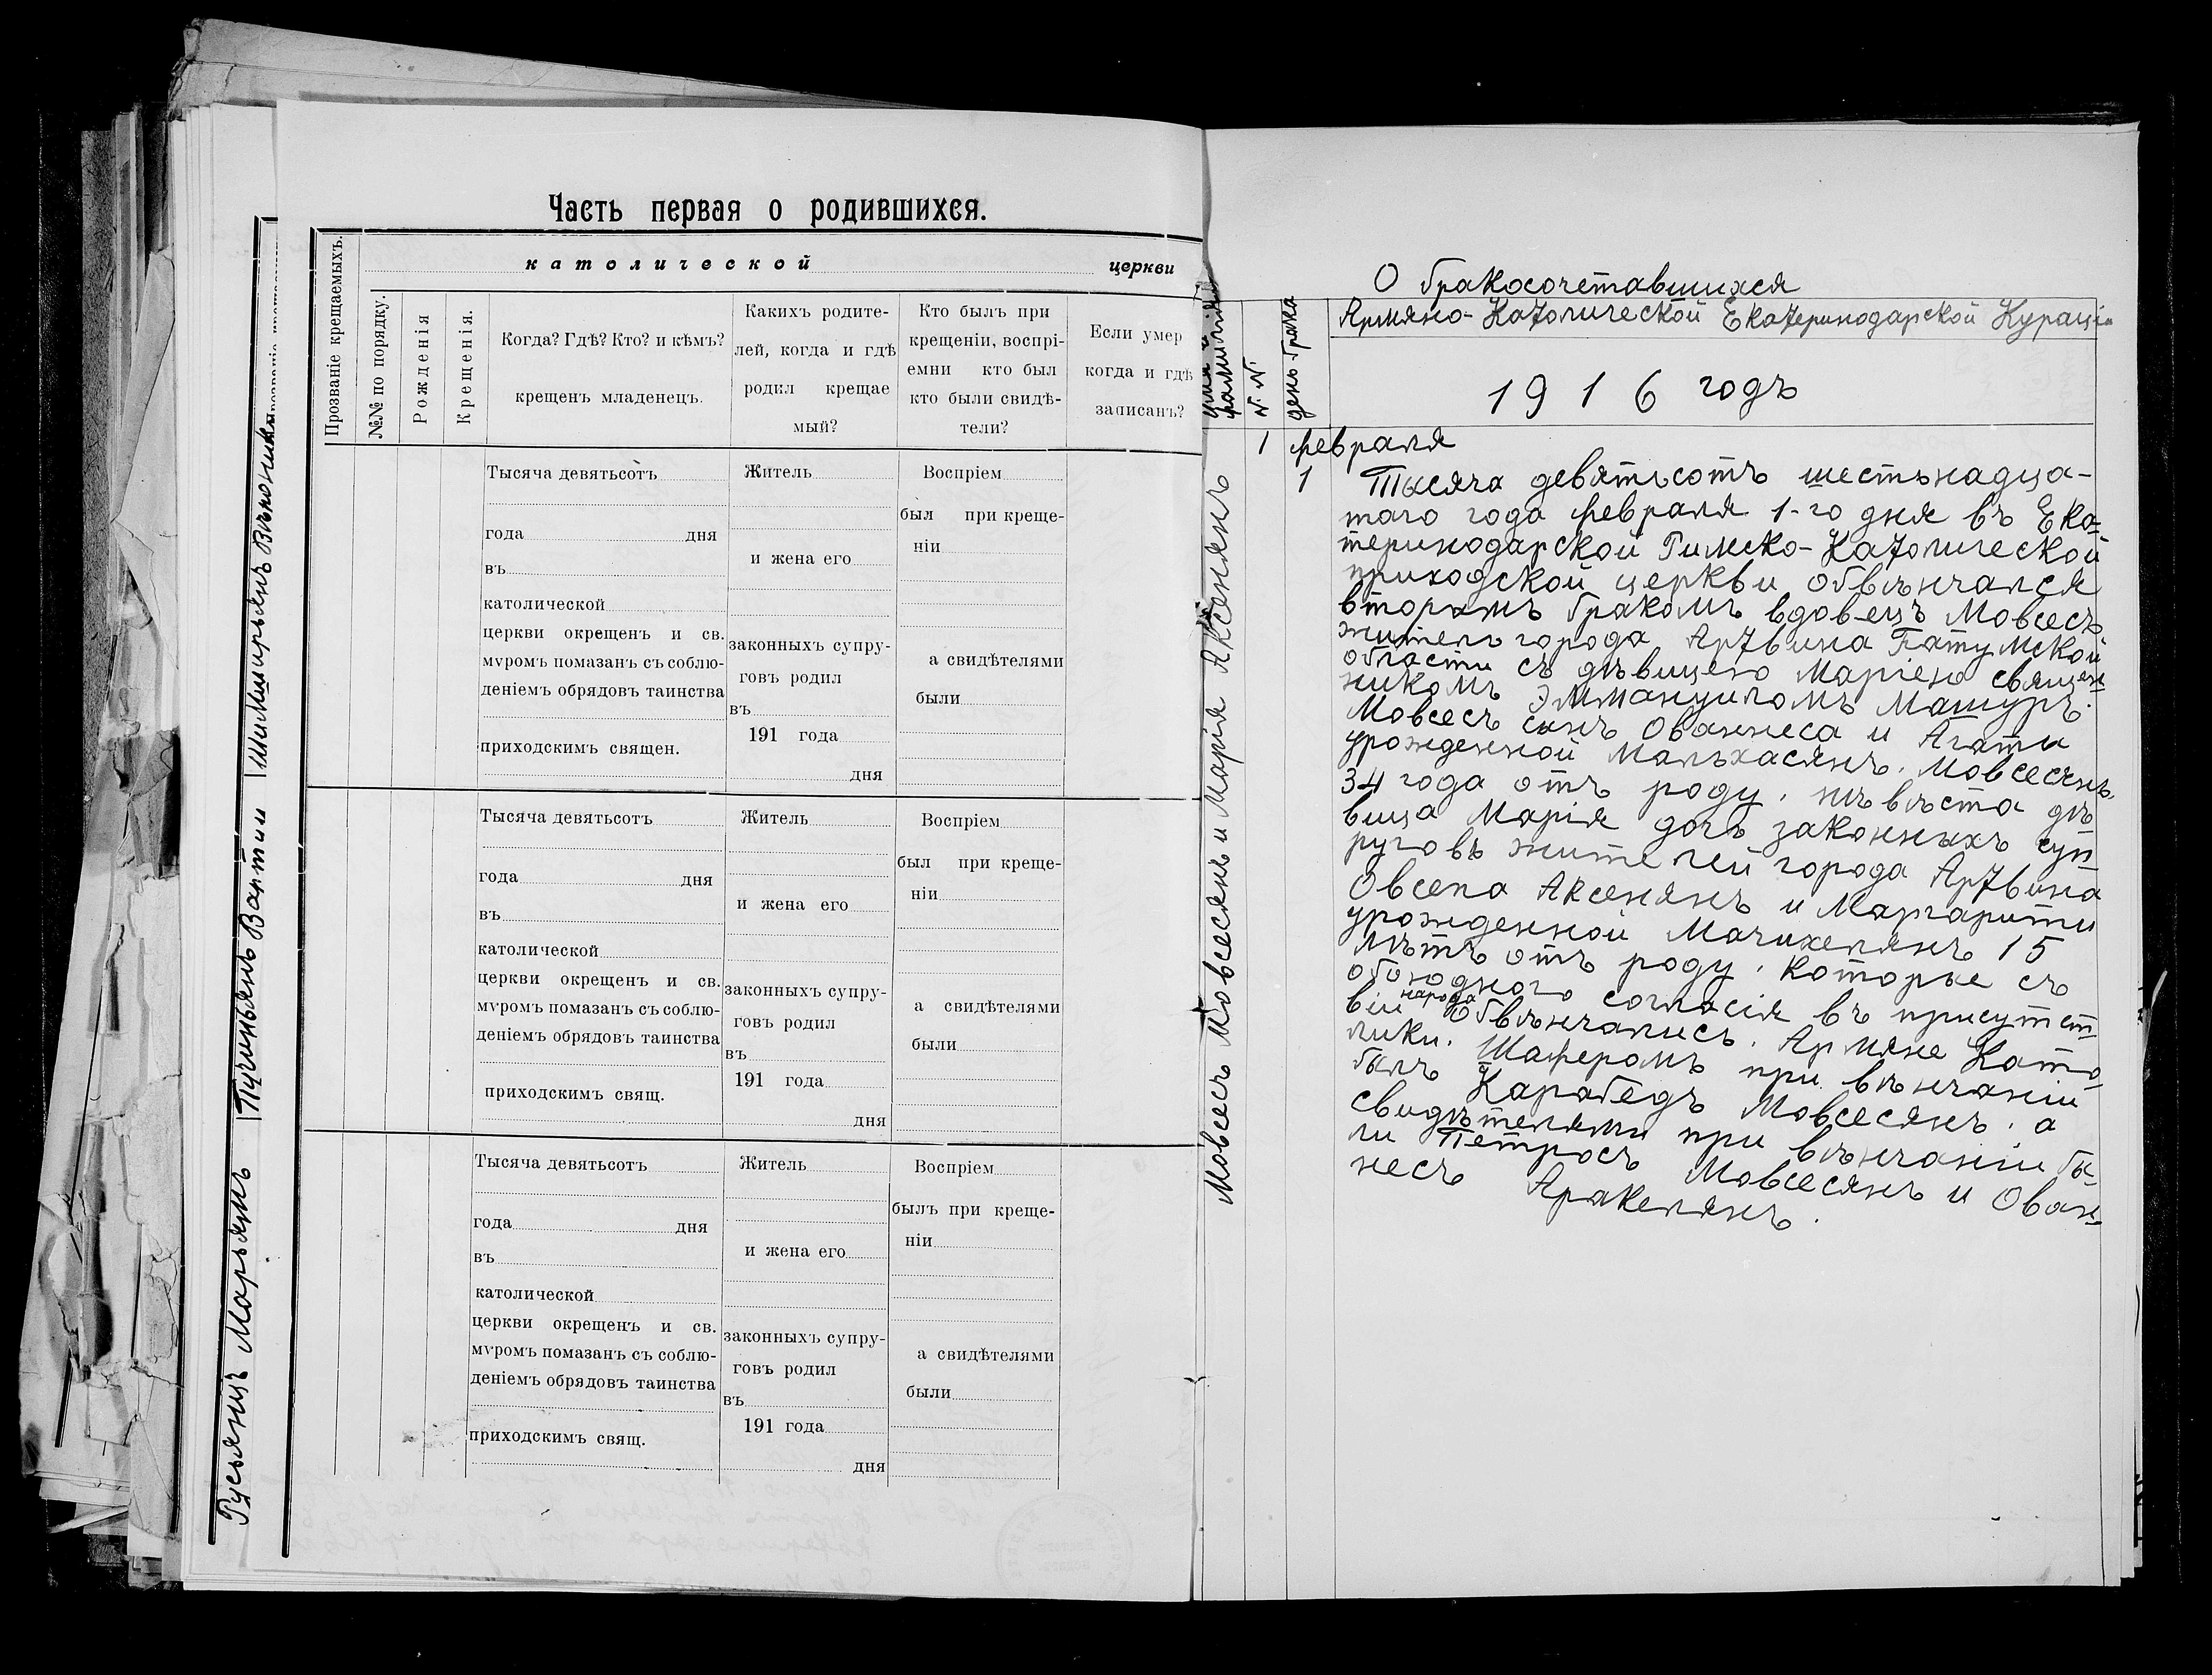 Гусьянцъ Марьямъ
Пучиньянъ Вартии
Шимширьянъ
Часть первая о родившихся.
Прозваніе крещаемыхъ.
католической церкви
№№ по порядку.
Рожденія
Крещенія.
Когда? Гдѣ? Кто? и кѣмъ?
крещенъ младенецъ.
Какихъ родите-
лей, когда и гдѣ
родил крещае
мый?
Кто былъ при
крещеніи, воспрі-
емни кто был
кто были свидѣ-
тели?
Если умер
когда и гдѣ
записанъ?
Тысяча девятьсотъ
года дня
въ
католической
церкви окрещенъ и св.
мѵромъ помазан съ соблю-
деніемъ обрядовъ таинства
приходскимъ священ.
Житель
и жена его
законныхъ супру-
говъ родил
въ
191 года
дня
Воспріем
был при креще-
ніи
а свидѣтелями
были
Тысяча девятьсотъ
года дня
въ
католической
церкви окрещенъ и св.
мѵромъ помазан съ соблю-
деніемъ обрядовъ таинства
приходскимъ свящ.
Житель
и жена его
законныхъ супру-
говъ родил
въ
191 года
дня
Воспріем
был при креще-
ніи
а свидѣтелями
были
Тысяча девятьсотъ
года дня
въ
католической
церкви окрещенъ и св.
мѵромъ помазан съ соблю-
деніемъ обрядовъ таинства
приходскимъ свящ.
Житель
и жена его
законныхъ супру-
говъ родил
въ
191 года
дня
Воспріем
былъ при креще-
ніи
а свидѣтелями
были
О бракосочетавшихся
Армяно-Католической Екатеринодарской Кураціи
имя и
фамилія
№ №
день брака
1916 годъ
Мовсесъ Мовсесянъ и Марія Аксенянъ
1 февраля
1 Тысяча девятьсотъ шестьнадца-
таго года февраля 1-го дня въ Ека-
теринодарской Римско-Католической
приходской церкви обвѣнчался
вторымъ бракомъ вдовецъ Мовсесъ
житель города Артвина Батумской
области съ дѣвицею Маріею священ-
никомъ Эммануиломъ Машуръ.
Мовсесъ сынъ Ованнеса и Агати
урожденной Мальхасянъ. Мовсесянъ
34 года отъ роду, нѣвѣста дѣ
вица Марія дочъ законныхъ суп
руговъ жителей города Артвина
Овсепа Аксенянъ и Маргарити
урожденной Мачихелянъ 15
лѣтъ отъ роду. Которые съ
обоюдного согласія въ присутст
віи народа обвѣнчались. Армяне Като
лики. Шаферомъ при вѣнчаніи
былъ Карабедъ Мовсесянъ. а
свидѣтелями при вѣнчаніи бы-
ли Петросъ Мовсесянъ и Ован-
несъ Аракелянъ.